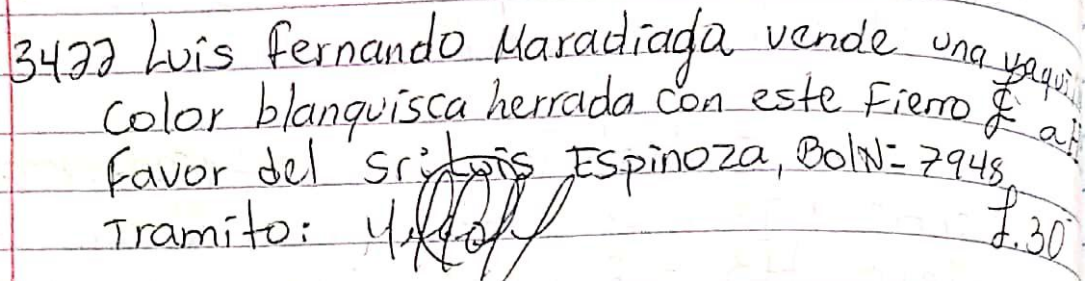 3477 Luis Fernando Maradiaga vende una
color blanquisca herrada con este Fierro
Favor del Sr: Luis Espinoza, Bol N= 7948
Tramito:
£.30